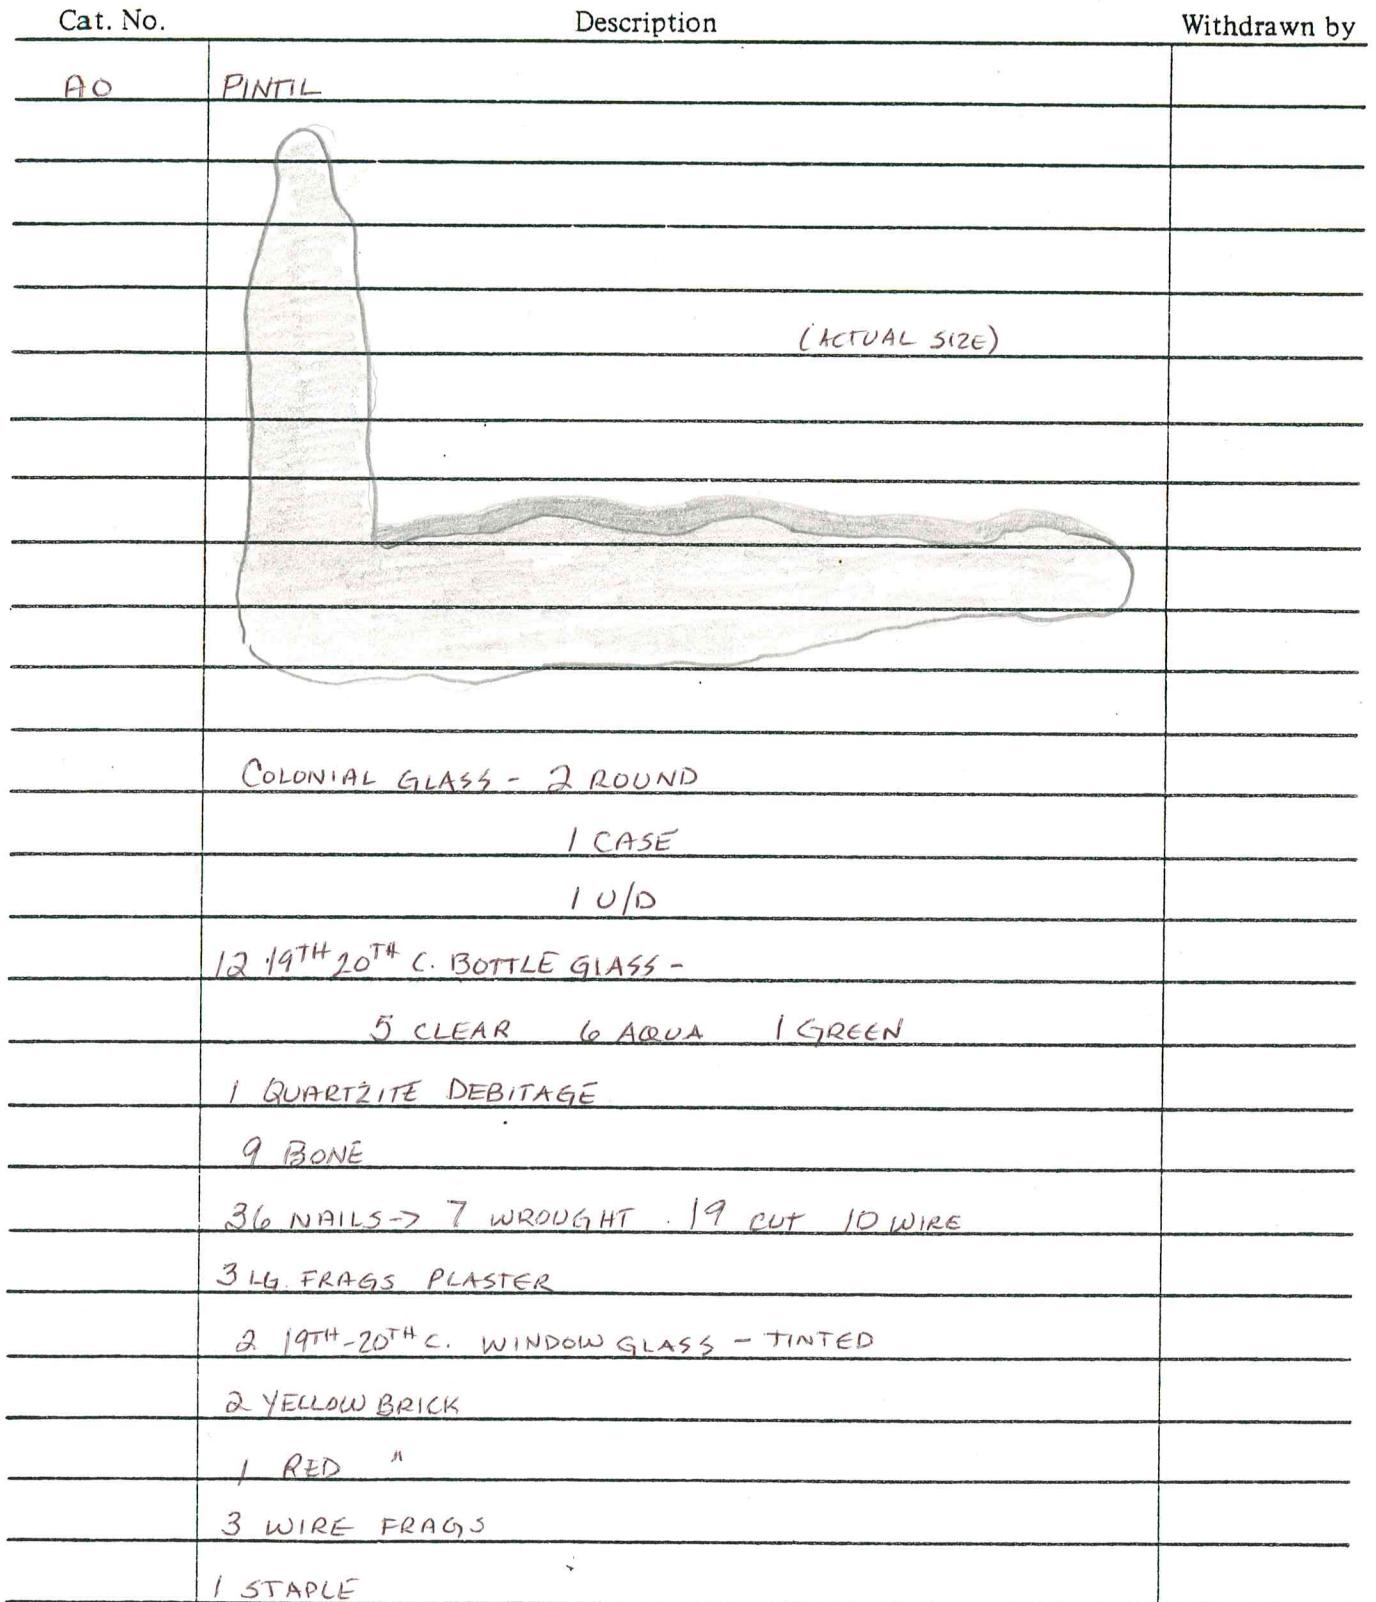 Cat. No. Description Withdrawn by
AO PINTIL
(ACTUAL SIZE)
COLONIAL GLASS - 2 ROUND
1 CASE
1 U/D
12 19TH 20TH C. BOTTLE GLASS -
5 CLEAR 6 AQUA 1 GREEN
1 QUARTZITE DEBITAGE
9 BONE
36 NAILS -> 7 WROUGHT 19 CUT 10 WIRE
3 LG. FRAGS PLASTER
2 19TH-20TH C. WINDOW GLASS - TINTED
2 YELLOW BRICK
1 RED "
3 WIRE FRAGS
1 STAPLE